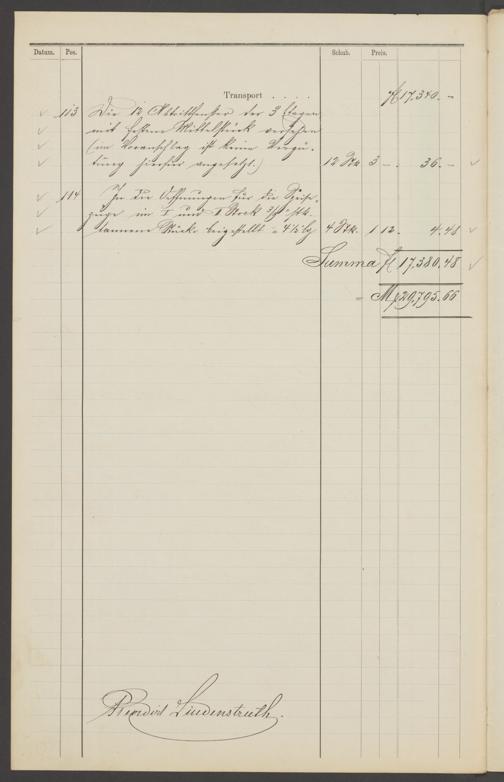 Datum. Pos. Schub. Preis.
Transport . . . . . fl 17,340. –
113 Die 12 Abtrittfenster der 3 Etagen
mit festem Mittelstück versehen
(im Voranschlag ist keine Vergü-
tung hierfür angesetzt.) 12 Stk 3 – . 36. –
114 In die Oeffnungen für die Speise-
züge im I und II Stock
tannene Stücke beigestellt 4 Stk. 1 12. 4.48
Summa fl 17,380.48
= M 29,795.66
Lindenstruth.